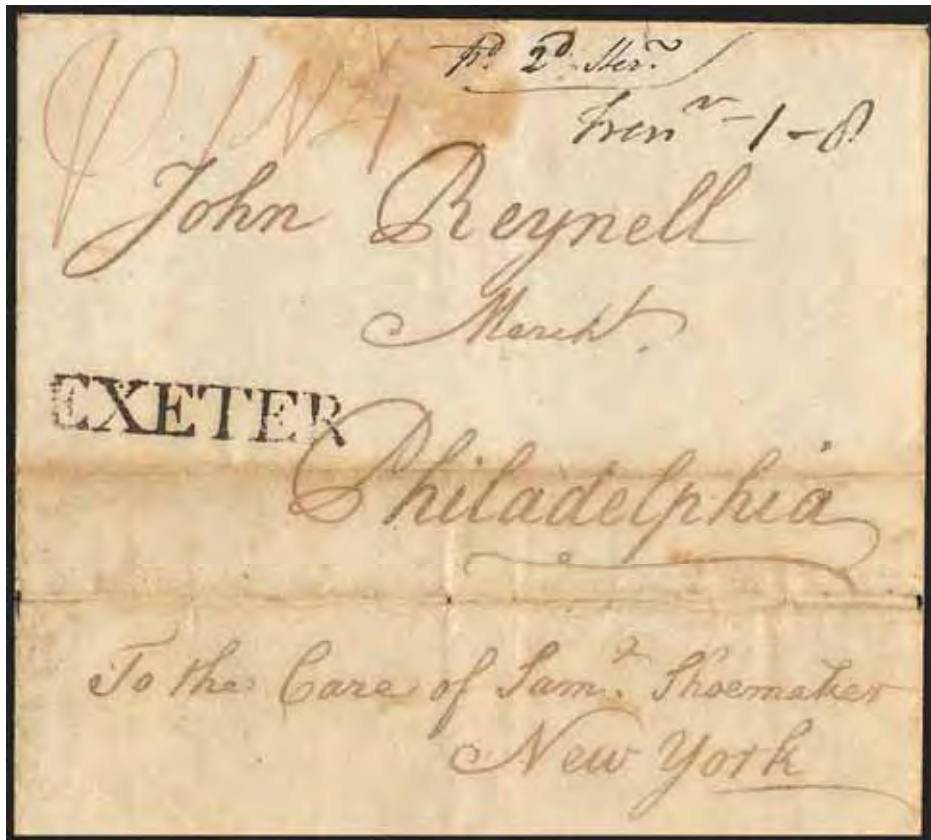 pd 2d Ster.
1N-4
1-8
John Reynell
Mercht.
EXETER
Philadelphia
To the Care of Saml. Shoemaker
New York